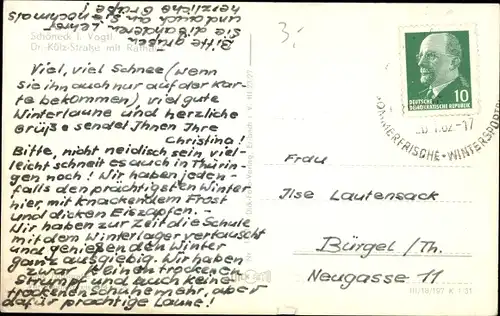 Schöneck i. Vogtl.
Dr.-Külz-Straße mit Rathaus
Viel, viel Schnee (wenn
sie ihn auch nur auf der Kar-
te bekommen), viel gute
Winterlaune und herzliche
Grüße sendet Ihnen Ihre
Christina!
Bitte, nicht neidisch sein, viel-
leicht schneit es auch in Thürin-
gen noch! Wir haben jeden-
falls den prächtigsten Winter
hier, mit knackendem Frost
und dicken Eiszapfen. -
Wir haben zur Zeit die Schule
mit dem Winterlager vertauscht
und genießen den Winter
ganz ausgiebig. Wir haben
zwar keinen trockenen
Strumpf und auch keine
trockenen Schuhe mehr, aber
dafür prächtige Laune!
Bitte grüßen
Sie die anderen Lehrer
und auch an Sie nochmals
herzliche Grüße!
3,-
10
DEUTSCHE
DEMOKRATISCHE REPUBLIK
62-17
SOMMERFRISCHE · WINTERSPORT
Frau
Ilse Lautensack
Bürgel/Th.
Neugasse 11
III/18/197 K 1/31